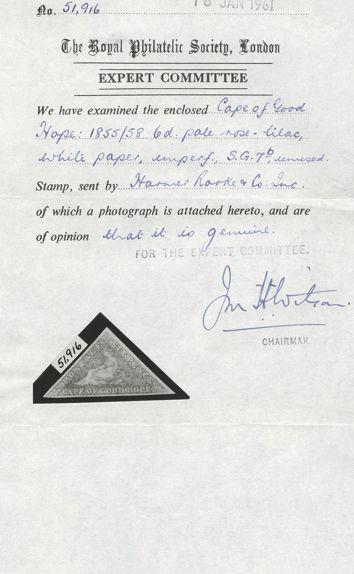 No. 51,916
18 JAN 1961
The Royal Philatelic Society, London
EXPERT COMMITTEE
We have examined the enclosed Cape of Good
Hope: 1855/58 6d. pale rose-lilac,
white paper, imperf., S.G. 7b, unused.
Stamp, sent by Harmer Rooke & Co. Inc.
of which a photograph is attached hereto, and are
of opinion that it is genuine.
FOR THE EXPERT COMMITTEE.
CHAIRMAN.
51,916
CAPE OF GOOD HOPE